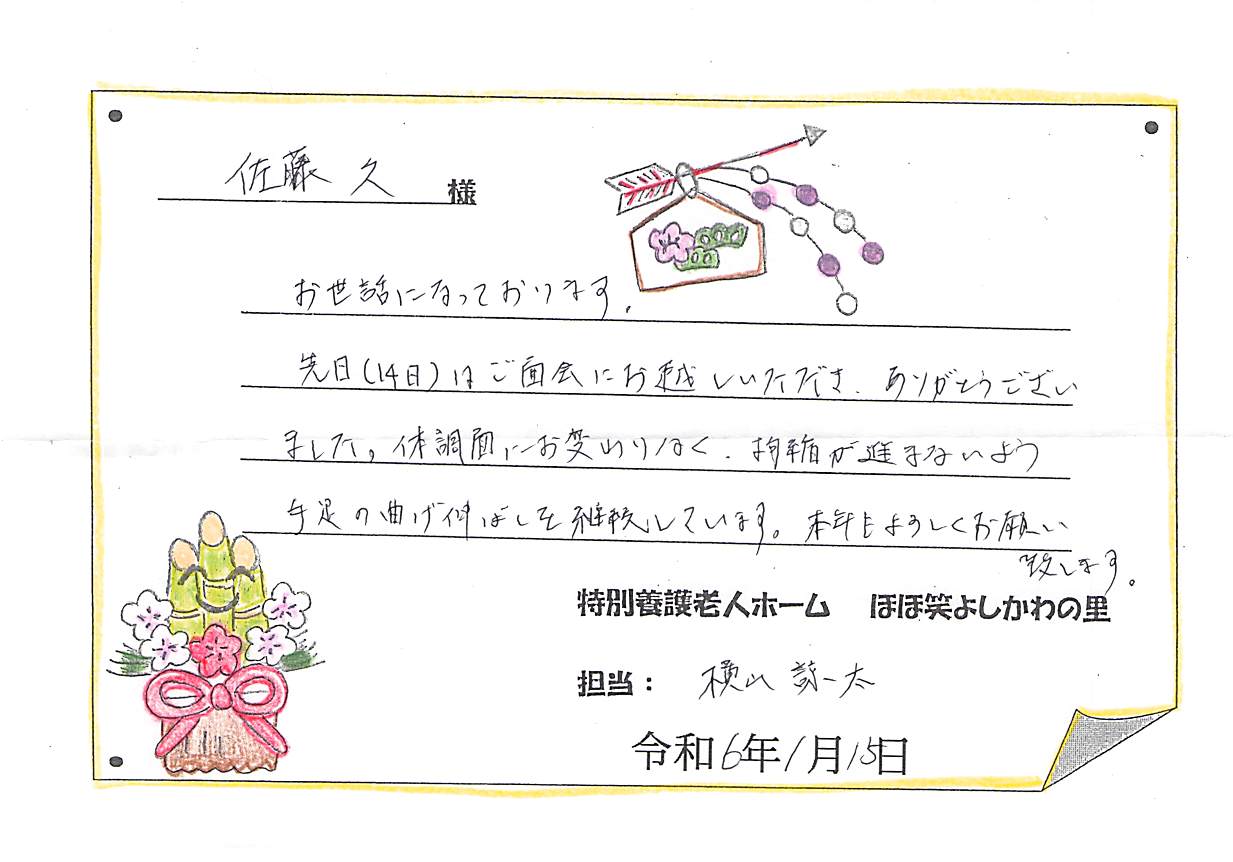 佐藤 久 様
お世話になっております。
先日(14日)はご面会にお越しいただき、ありがとうござい
ました。体調面にお変わりなく、拘縮が進まないよう
手足の曲げ伸ばしを継続しています。本年もよろしくお願い
致します。
特別養護老人ホーム ほほ笑よしかわの里
担当: 横山 諒太
令和6年1月15日